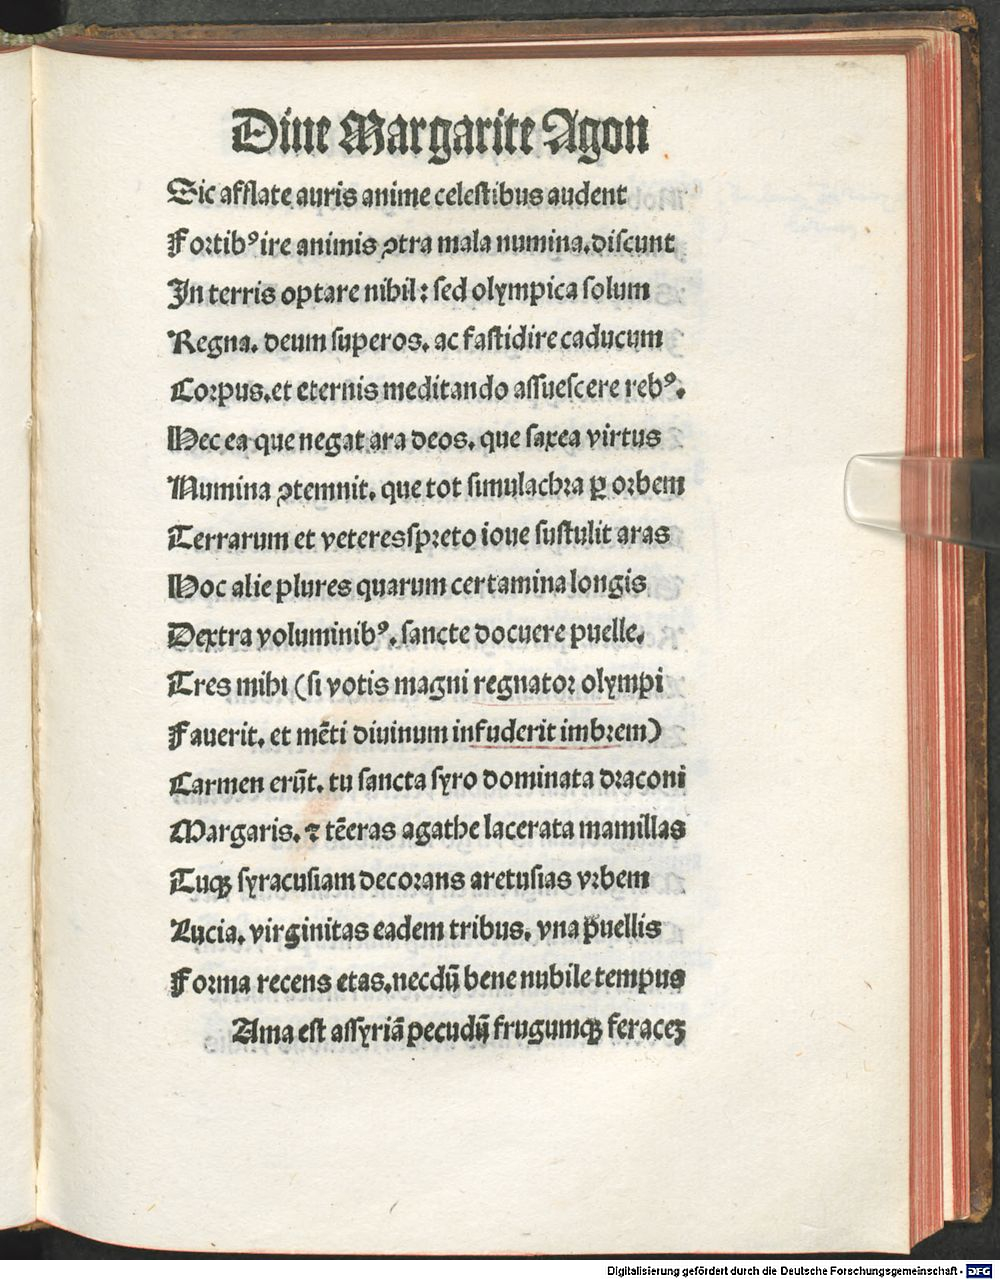 Diue Margarite Agon
Sic afflate auris anime celestibus audent
Fortibꝰ ire animis ꝯtra mala numina. discunt
In terris optare nihil: sed olympica solum
Regna. deum superos. ac fastidire caducum
Corpus. et eternis meditando assuescere rebꝰ.
Hec ea que negat ara deos. que saxea virtus
Numina ꝯtemnit. que tot simulachra ꝑ orbem
Terrarum et veteres spreto ioue sustulit aras
Hoc alie plures quarum certamina longis
Dextra voluminibꝰ. sancte docuere puelle.
Tres mihi (si votis magni regnator olympi
Fauerit. et mēti diuinum infuderit imbrem)
Carmen erūt. tu sancta syro dominata draconi
Margaris. ⁊ tēeras agathe lacerata mamillas
Tuqꝫ syracusiam decorans aretusias vrbem
Lucia. virginitas eadem tribus. vna p̄uellis
Forma recens etas. necdū bene nubile tempus
Ama est assyriā pecudū frugumqꝫ feraceꝫ
Digitalisierung gefördert durch die Deutsche Forschungsgemeinschaft - DFG